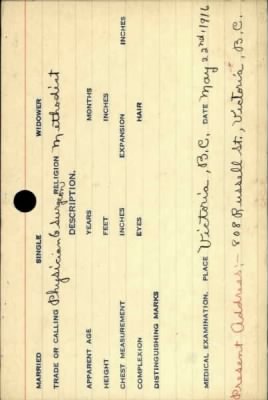 MARRIED SINGLE WIDOWER
TRADE OR CALLING Physician & Surgeon RELIGION Methodist
DESCRIPTION.
APPARENT AGE YEARS MONTHS
HEIGHT FEET INCHES
CHEST MEASUREMENT INCHES EXPANSION INCHES
COMPLEXION EYES HAIR
DISTINGUISHING MARKS
MEDICAL EXAMINATION. PLACE Victoria, B.C. DATE May 22nd, 1916
Present Address:- 808 Russell St., Victoria, B.C.